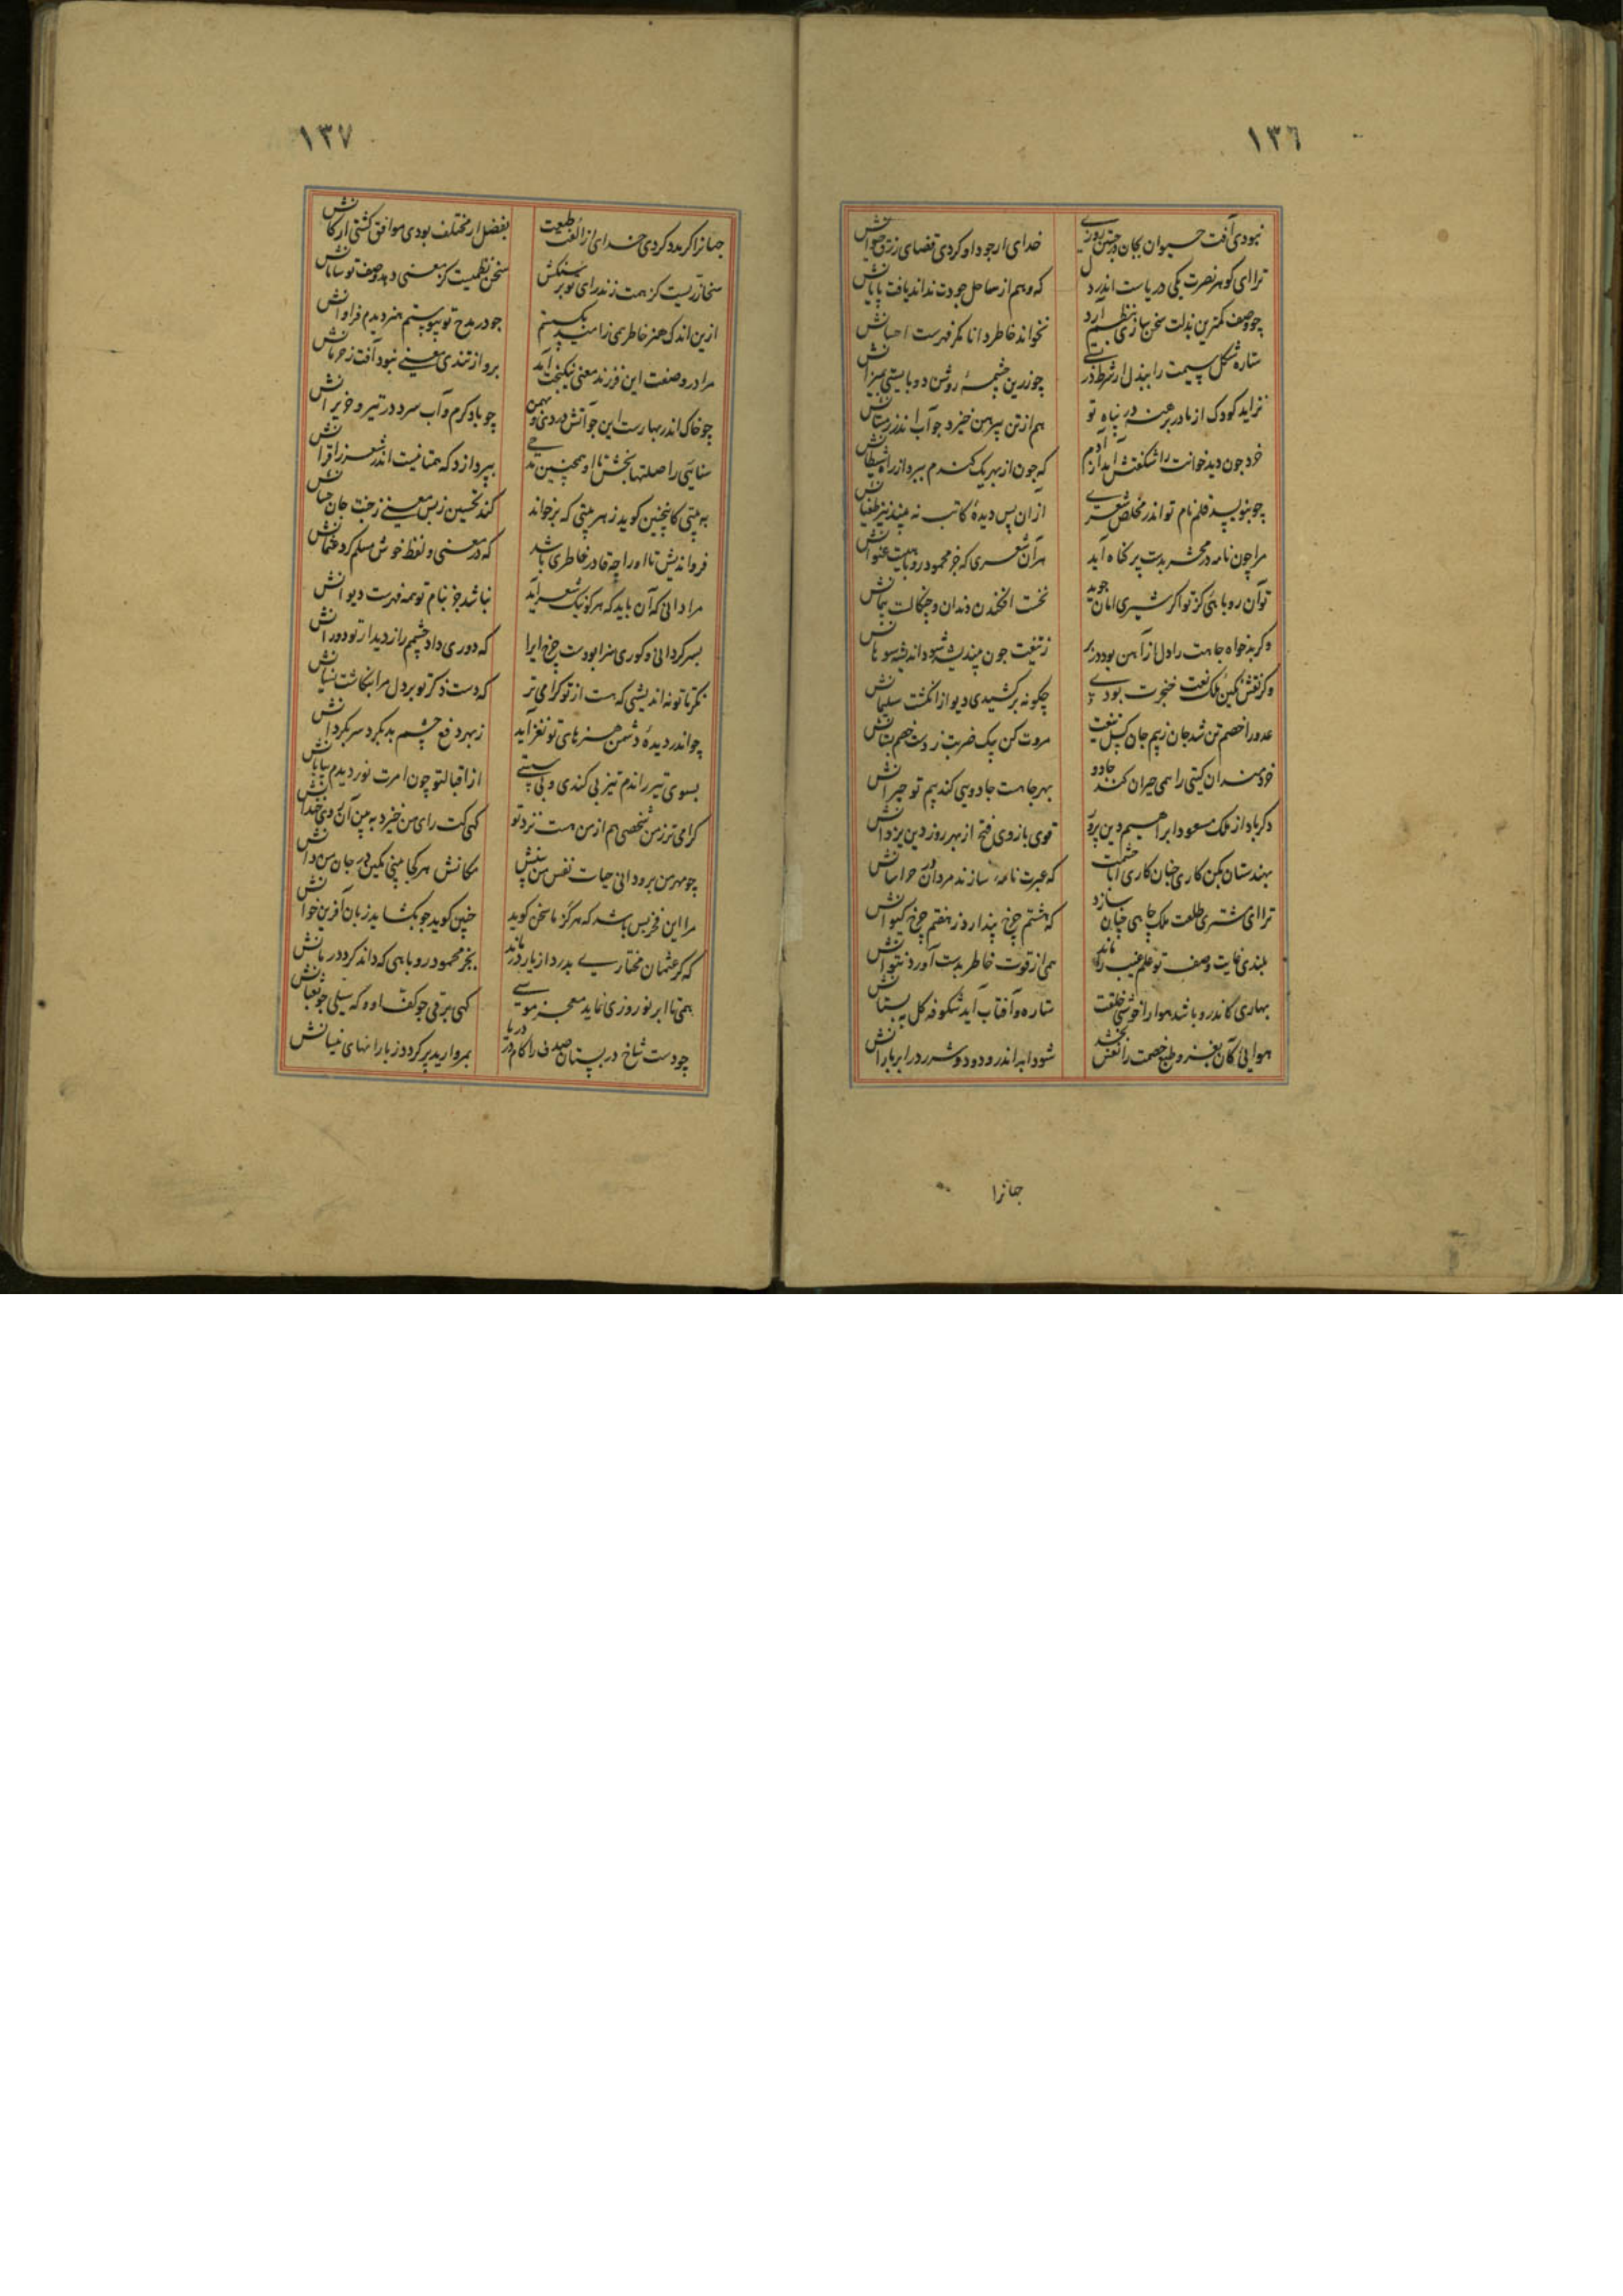 ١٣٦
نبودی آفت حیوان بکان در چنین روزی خدای ار جود او کردی قضای رزق حیوانش
ترا ای کوهر نصرت یکی دریاست اندر دل که وهم از ساحل جودت نداند یافت پایانش
چو وصف کمترین بذلت سخن سازی بنظم آرد نخواند خاطر دانا مکر فهرست احسانش
ستاره شکل سیمت را ببذل ار شرط چو زرین چشمهٔ روشن دو بایستی میزانش
نزاید کودک از مادر در پناه تو هم از تن پیرهن خیزد چو آب اندر زمستانش
خرد چون دید خوانت را شکفتش آمد از آدم که چون از بهر یک کندم ببرد از راه شیطانش
چو بنویسد قلم نام تو اندر مخلص شعری از آن پس دیدهٔ کاتب نه بیند نیز طغیانش
مرا چون نامه در محشر بدست پر کناه آید هر آن شعری که جز محمود روباهیست عنوانش
تو آن روباهئی کز تو اکر شیری امان جوید نخست افکندن دندان و چنکالست پیمانش
وکر بدخواه جاهت را دل از آهن بود در بر ز تیغت چون بیندیشد شود اندیشه سوهانش
وکر نقش نکین ملک نعت خنجرت بودی چکونه برکشیدی دیو از انکشت سلیمانش
عدو را خصم تن شد جان ز بیم جان کسل تیغت مروت کن بیک ضربت ز دست خصم بستانش
خردمندان کیتی را همی حیران کند جادو بهر جا هست جادویی کند بیم تو حیرانش
دکر باد از ملک مسعود ابراهیم دین پرور قوی بازوی فتح از بهر روز دین یزدانش
بهندستان بکن کاری چنان کاری ای با حشمت که عبرت نامه سازند مردان در خراسانش
ترا ای مشتری طلعت ملک جاهی چنان سازد که هشتم چرخ پندارد ز هفتم چرخ کیوانش
بلندی غایت وصف تو علم غیب را ماند همی از قوت خاطر بدست آورد نتوانش
بهاری کاندرو باشد هوا را خوشی خلقت ستاره و آفتاب آید شکوفه کل به بستانش
هوایی کان بغز و طبع خصمت را نفس بخشد شود ابر اندرو دود و شرر در ابر بارانش
جهانرا
١٣٧
جهانرا کر مدد کردی خدای از الفت طبعت بفضل ار مختلف بودی موافق کشتی ارکانش
سخا زریست کز همت زند رای تو بر سنکش سخن نظمیست کز معنی دهد وصف تو سامانش
ازین اندک هنر خاطر همی زامید بکسستم چو در مدح تو پیوستم هنر دیدم فراوانش
مرا در وصفت این فرزند معنی نیکبخت آمد برو از تندی معنی نبود آفت ز حرمانش
چو خاک اندر بهارست این چو آتش در دی و بهمن چو باد کرم و آب سرد در تیر و حزیرانش
سنائی را صلتها بخش تا او همچنین مدحی بپردازد که همتا نیست اندر شعر ز اقرانش
به بیتی کاینچنین کوید ز هر بیتی که برخواند کند تحسین ز بس معنی ز جنت جان حسانش
فرو اندیش تا او را چه قادر خاطری باشد که در معنی و لفظ خوش مسلم کرد عثمانش
مرا دانی که آن باید که هر کو نیک شعر آید نباشد جز بنام تو همه فهرست دیوانش
بسر کردانی و کوری سزا بودست چرخ ایرا که دوری داد چشمم را ز دیدار تو دورانش
نکر تا تو نه اندیشی که هست از تو کرامی تر که دست ذکر تو بر دل مرا بنکاشت نسیانش
چو اندر دیدهٔ دشمن هنرهای تو نغز آید ز بهر دفع چشم بد بکرد سر بکردانش
بسوی تیر راندم تیز بی کندی و بی سستی از اقبال تو چون امرت نوردیدم بیابانش
کرامی تر ز من شخصی هم از من هست نزد تو کهی کت رای من خیزد به بین آن روی خندانش
چو مهر من برو دانی حیات نفس من بینش مکانش هر کجا بینی مکین در جان من دانش
مرا این فخر بس باشد که هر کز ما سخن کوید چنین کوید چو بکشاید زبان آفرین خوانش
که کر عثمان مختاری بدرد از یار درماند بجز محمود روباهی که داند کرد درمانش
همی تا ابر نوروزی نماید معجز موسی کهی برقی چو کف او و که سیلی چو ثعبانش
چو دست شاخ در بستان صدف را کام در دریا بمروارید پر کردد ز بارانهای نیسانش